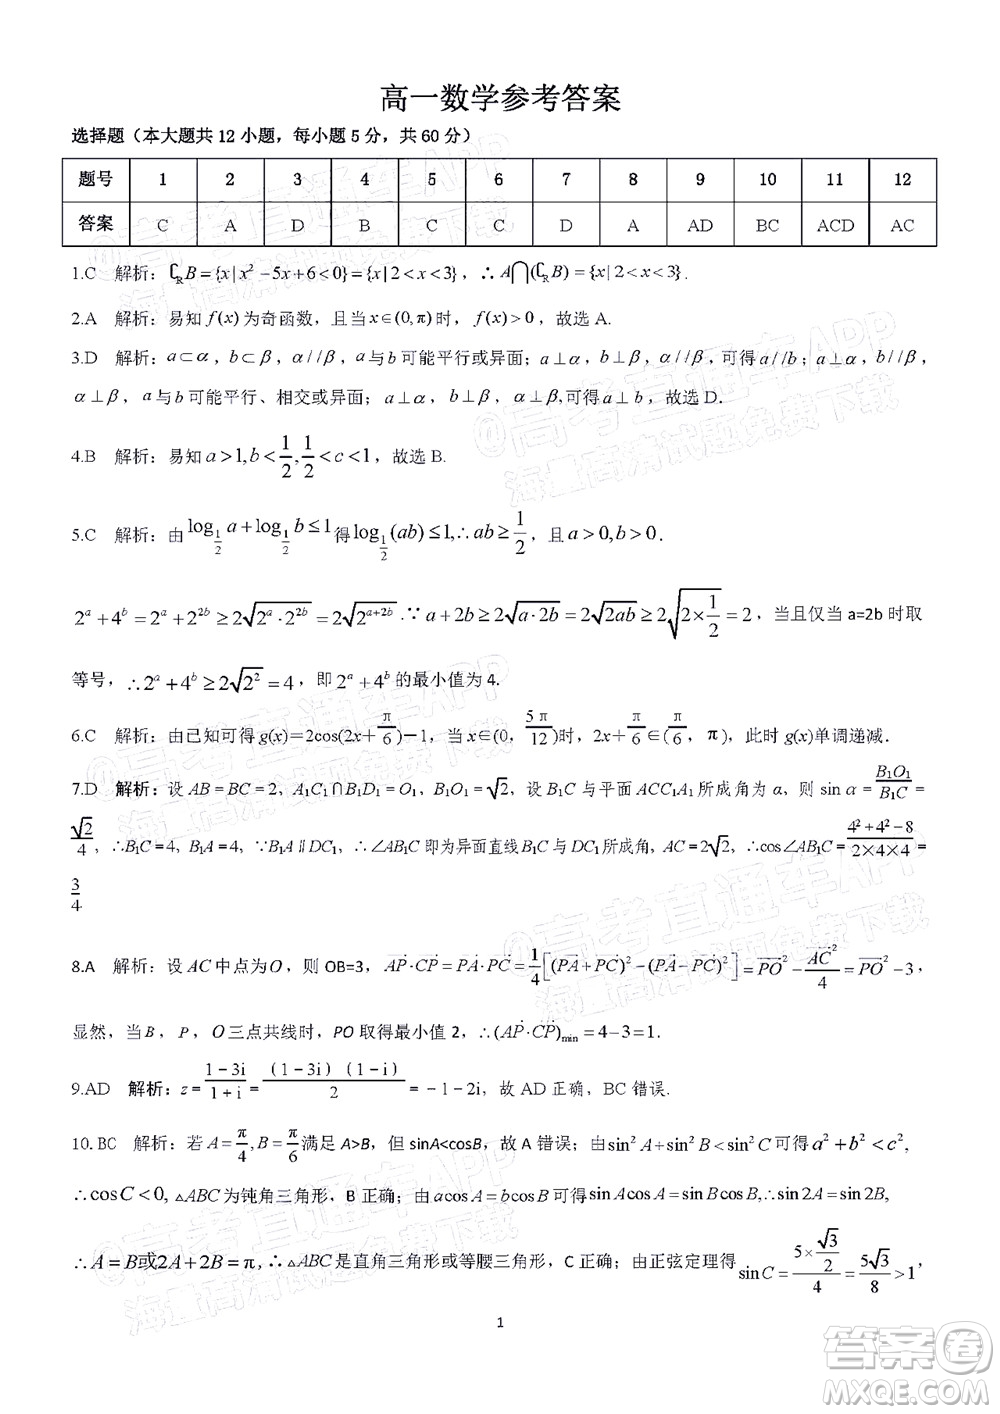 高一数学参考答案
选择题（本大题共 12 小题，每小题 5 分，共 60 分）
题号 1 2 3 4 5 6 7 8 9 10 11 12
答案 C A D B C C D A AD BC ACD AC
1.C 解析：∁_R B={x|x²−5x+6<0}={x|2<x<3}，∴A⋂(∁_R B)={x|2<x<3}.
2.A 解析：易知 f(x)为奇函数，且当x∈(0,π)时，f(x)>0，故选 A.
3.D 解析：a⊂α，b⊂β，α//β，a与b可能平行或异面；a⊥α，b⊥β，α//β，可得a//b；a⊥α，b//β，
α⊥β，a与b可能平行、相交或异面；a⊥α，b⊥β，α⊥β,可得a⊥b，故选 D.
4.B 解析：易知a>1,b<1/2,1/2<c<1，故选 B.
5.C 解析：由log_{1/2} a+log_{1/2} b≤1得log_{1/2}(ab)≤1,∴ab≥1/2，且a>0,b>0.
2^a+4^b=2^a+2^{2b}≥2√(2^a·2^{2b})=2√(2^{a+2b}).∵a+2b≥2√(a·2b)=2√(2ab)≥2√(2×1/2)=2，当且仅当 a=2b 时取
等号，∴2^a+4^b≥2√(2²)=4，即2^a+4^b的最小值为 4.
6.C 解析：由已知可得 g(x)=2cos(2x+π/6)−1，当 x∈(0，5π/12)时，2x+π/6∈(π/6，π)，此时 g(x)单调递减.
7.D 解析：设 AB=BC=2，A₁C₁∩B₁D₁=O₁，B₁O₁=√2，设 B₁C 与平面 ACC₁A₁ 所成角为 α，则 sin α=B₁O₁/B₁C=
√2/4，∴B₁C=4，B₁A=4，∵B₁A∥DC₁，∴∠AB₁C 即为异面直线B₁C 与 DC₁所成角，AC=2√2，∴cos∠AB₁C=(4²+4²−8)/(2×4×4)=
3/4
8.A 解析：设AC中点为O，则 OB=3，AP·CP=PA·PC=1/4[(PA+PC)²−(PA−PC)²]=PO²−AC²/4=PO²−3，
显然，当B，P，O三点共线时，PO 取得最小值 2，∴(AP·CP)min=4−3=1.
9.AD 解析：z=(1−3i)/(1+i)=(1−3i)(1−i)/2=−1−2i，故 AD 正确，BC 错误.
10.BC 解析：若A=π/4,B=π/6满足 A>B，但 sinA<cosB，故 A 错误；由sin²A+sin²B<sin²C可得a²+b²<c²,
∴cosC<0,△ABC为钝角三角形，B 正确；由acosA=bcosB可得sinAcosA=sinBcosB,∴sin2A=sin2B,
∴A=B或2A+2B=π,∴△ABC是直角三角形或等腰三角形，C 正确；由正弦定理可得sinC=(5×√3/2)/4=5√3/8>1，
1
答案圈
MXQE.COM
@高考直通车APP
海量高清试题免费下载
@高考直通车APP
海量高清试题免费下载
@高考直通车APP
海量高清试题免费下载
@高考直通车APP
海量高清试题免费下载
@高考直通车APP
海量高清试题免费下载